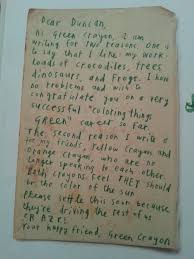 Dear Duncan,
Hi Green Crayon, I am
writing for two reasons. One is
to say that I like my work:
loads of crocodiles, trees,
dinosaurs, and frogs. I have
no problems and wish to
congratulate you on a very
successful "coloring things
GREEN" career so far.
The second reason I write is
for my friends, Yellow Crayon and
Orange Crayon, who are no
longer speaking to each other.
Both crayons feel THEY should
be the color of the sun.
Please settle this soon because
they're driving the rest of us
CRAZY!
Your happy friend, Green Crayon